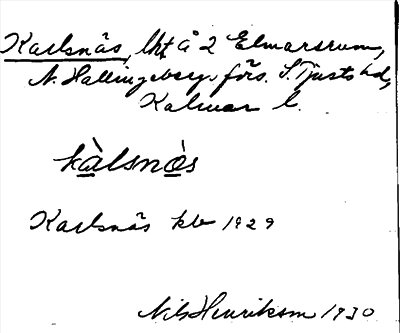 Karlsnäs, lht å 2 Elmarsrum,
N. Hallingebergs förs. S. Tjusts hd,
Kalmar l.
kàlsnòs
Karlsnäs kb 1929
Nils Henrikson 1930